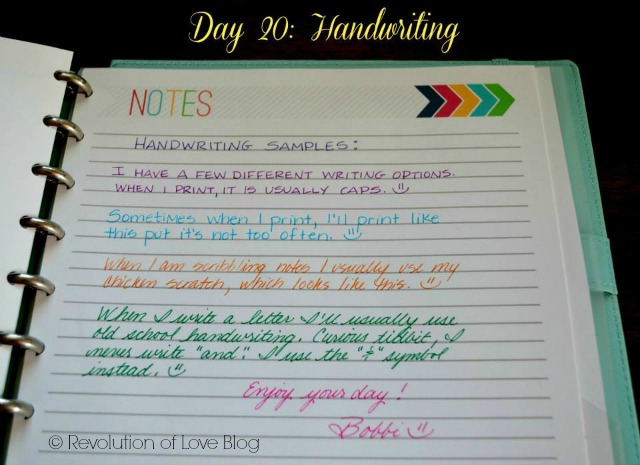 Day 20: Handwriting
NOTES
HANDWRITING SAMPLES:
I HAVE A FEW DIFFERENT WRITING OPTIONS.
WHEN I PRINT, IT IS USUALLY CAPS.
Sometimes when I print, I'll print like
this put it's not too often.
When I am scribbling notes I usually use my
chicken scratch, which looks like this.
When I write a letter I'll usually use
old school handwriting. Curious tidbit, I
never write "and". I use the "&" symbol
instead.
Enjoy your day!
Bobbi
© Revolution of Love Blog